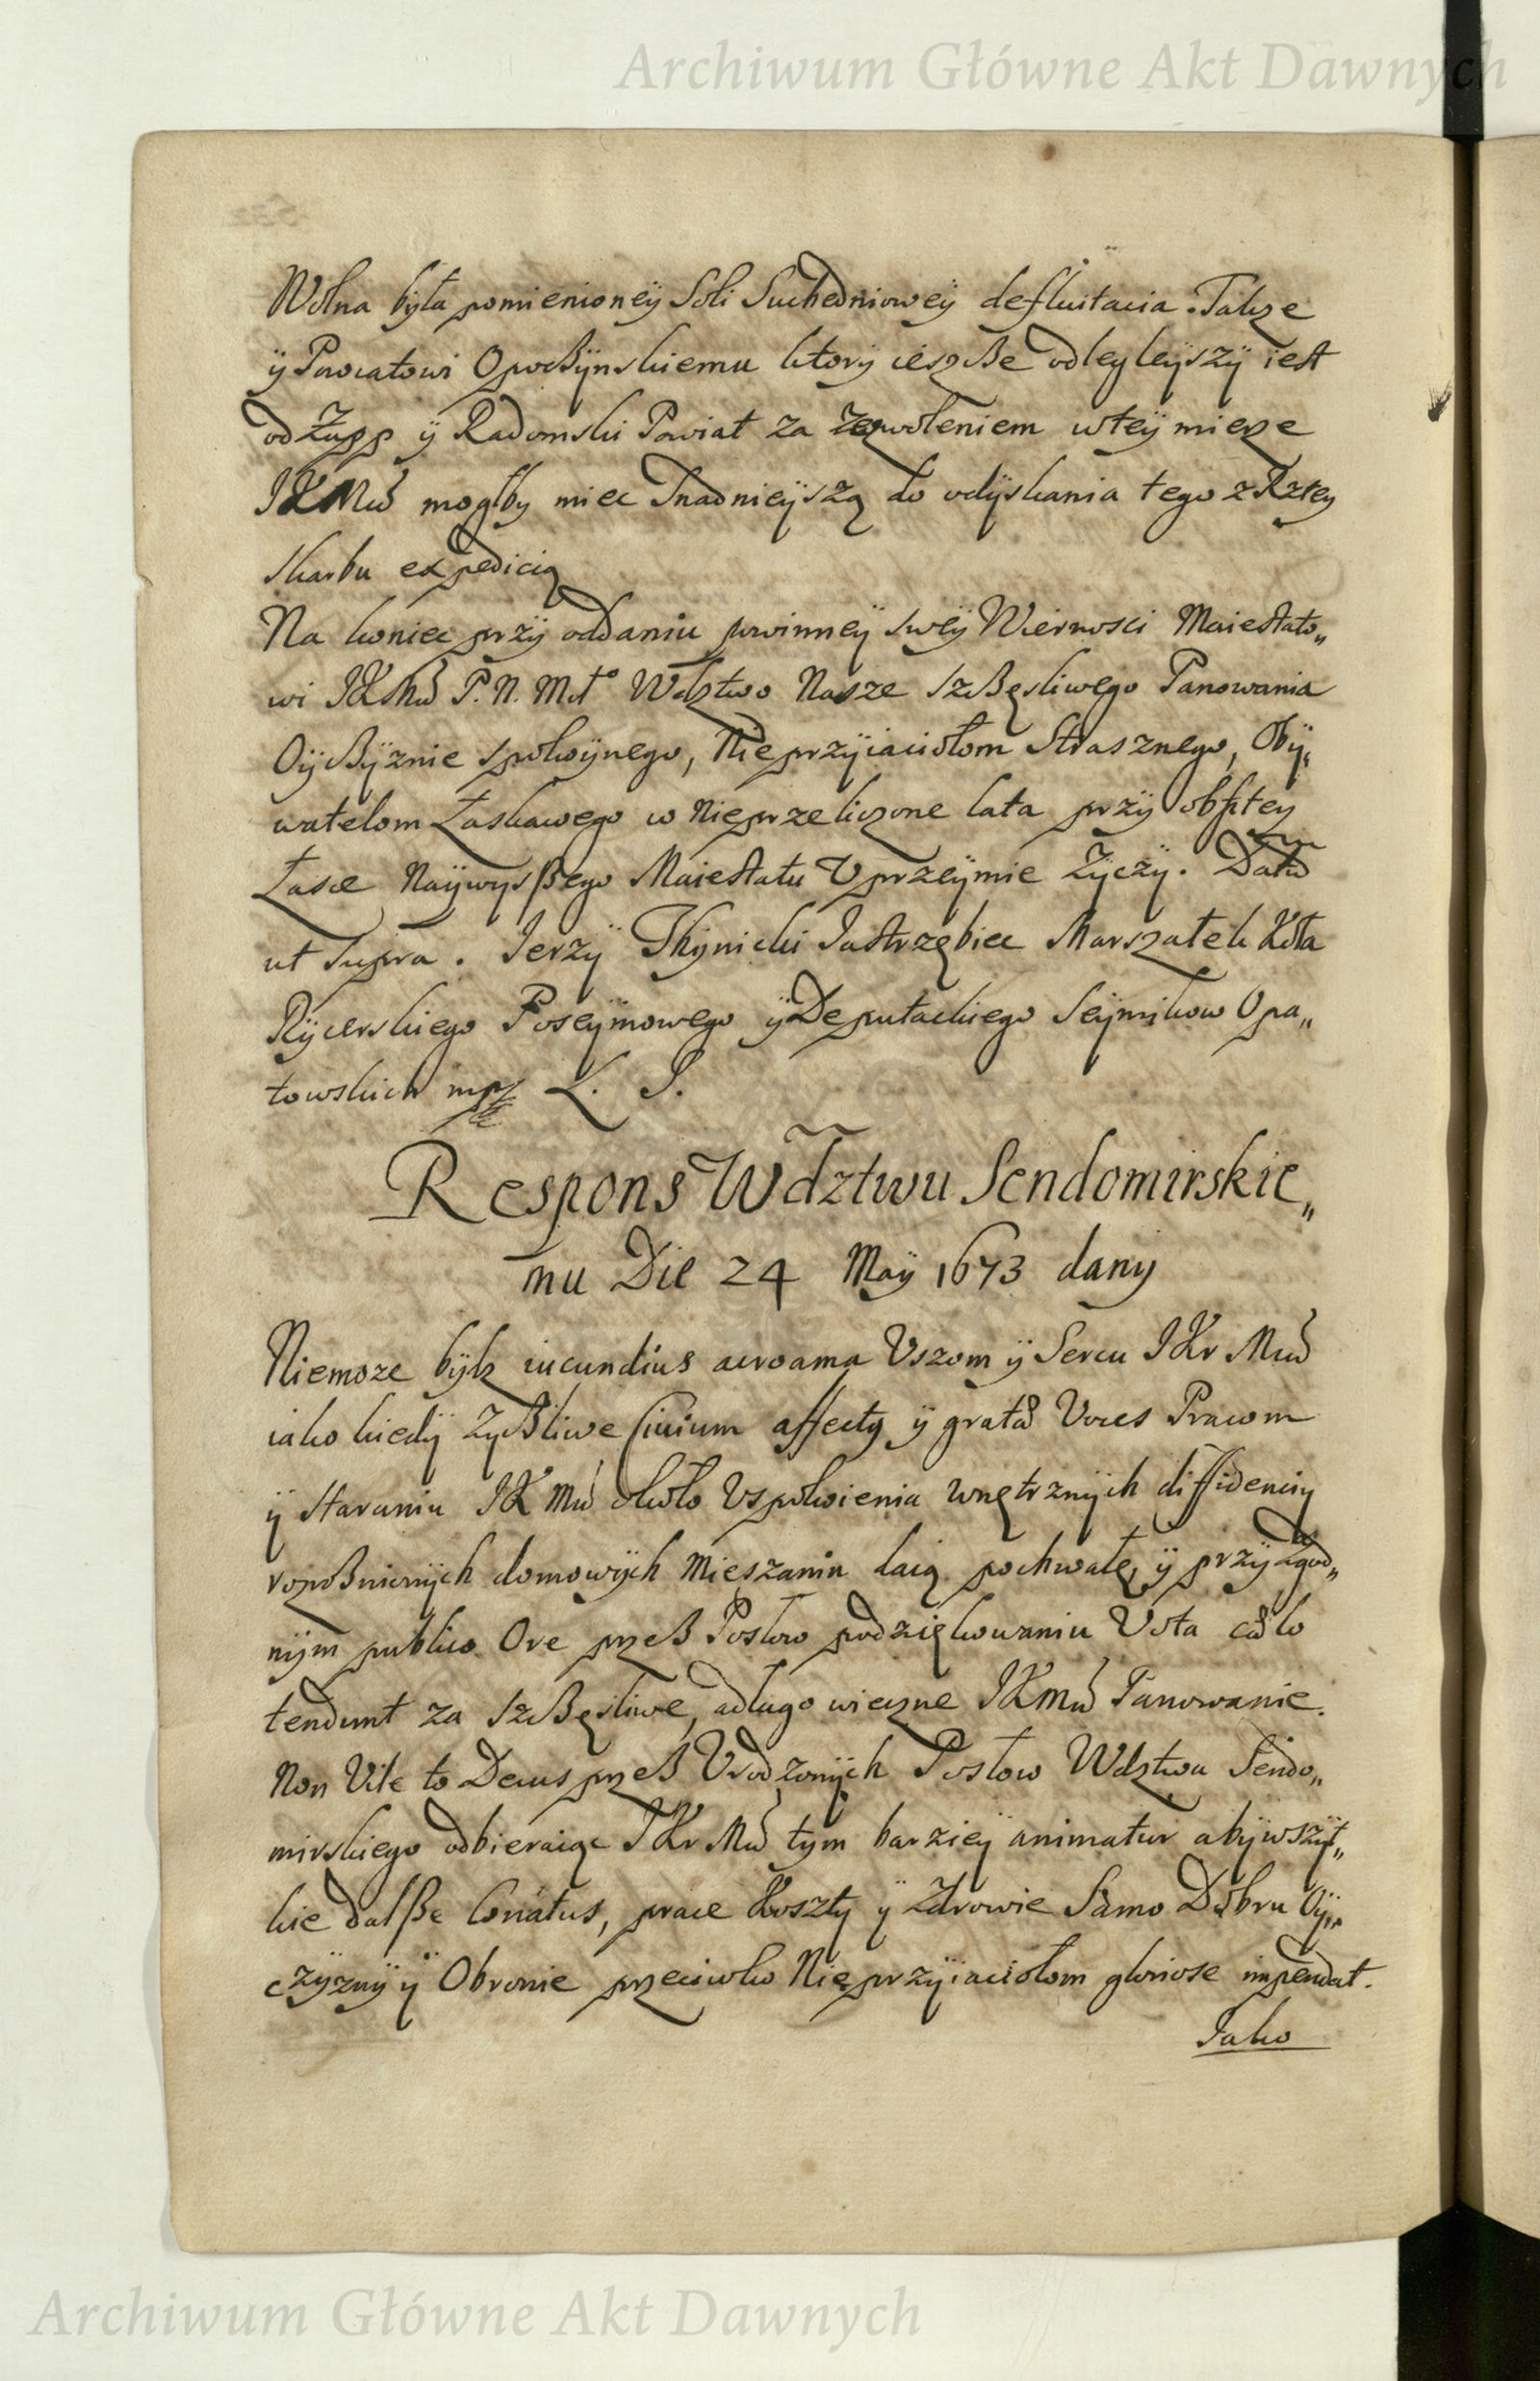 Archiwum Główne Akt Dawnych
Wolna była pomienioneÿ Soli Suchednioweÿ defluitacia. Takze
ÿ Powiatowi Opoczÿnskiemu ktorÿ ieszcze odlegleÿszÿ iest
od Zupp ÿ Radomski Powiat za zezwoleniem wteÿ mierze
JKMci mogłby miec Snadnieÿszą do odÿskania tego z Rztey
skarbu expedicią
Na koniec przÿ oddaniu powinneÿ sweÿ Wiernosci Maiestato„
wi JKMci P. N. Mło Wdztwo Nasze szczęsliwego Panowania
Oÿczÿznie spokoÿnego, Nieprzÿiaciołom Strasznego, Obÿ„
watelom Łaskawego w nieprzeliczone lata przÿ obfitey
Łasce Naÿwysszego Maiestatu Uprzeÿmie Zÿczÿ. Datũ
ut supra. Jerzÿ Jastrzębiec Marszałek Koła
Rÿcerskiego Poseÿmowego ÿ Deputackiego Seÿmikow Opa„
towskich mpp L. S.
Respons Wdztwu Sendomirskie„
mu Die 24 Maÿ 1673 dany
Niemoze bÿdz iucundius acroama Uszom ÿ Sercu JKr Mci
iako kiedÿ zyczliwe Civium affecty ÿ gratæ Voces Pracom
ÿ staraniu JK Mci około Uspokoienia wnętrznÿch diffidenciy
roznicnÿch domowÿch mieszanin daią pochwałę, ÿ przÿ zgod„
nÿm publico Ore przez Posłow podziękowaniu Vota cælo
tendunt za szczęsliwe, adługo wieczne JKMci Panowanie.
Non Vile to Decus przez Urodzonÿch Posłow Wdztwa Sendo„
mirskiego odbieraiąc JKr Mci tym barzieÿ animatur abÿ wszÿt„
kie dalsze Conatus, prace koszty ÿ Zdrowie Samo Dobru Oÿ„
czÿznÿ ÿ Obronie przeciwko Nieprzÿiaciołom gloriose impendat.
Jako
Archiwum Główne Akt Dawnych